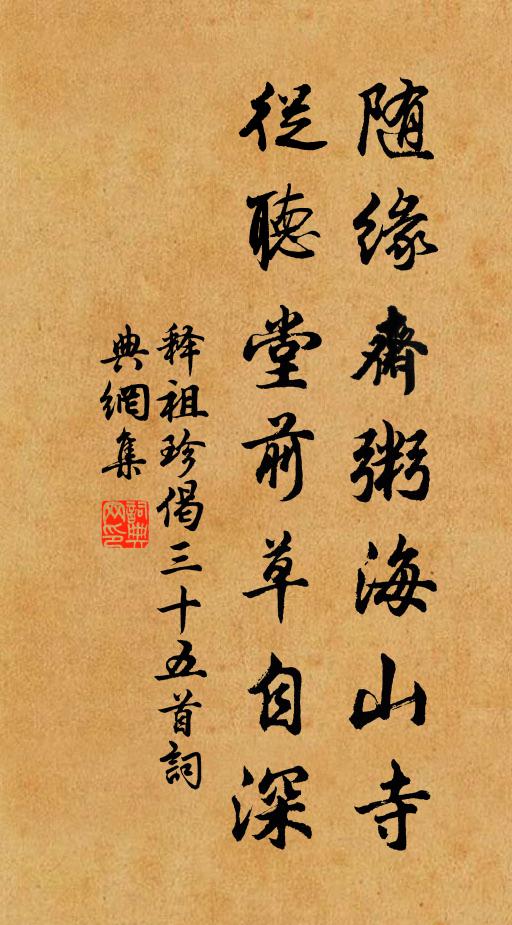 随缘齋粥海山寺
從聽堂前草自深
释祖珍偈三十五首詞
典網集
詞典
网印